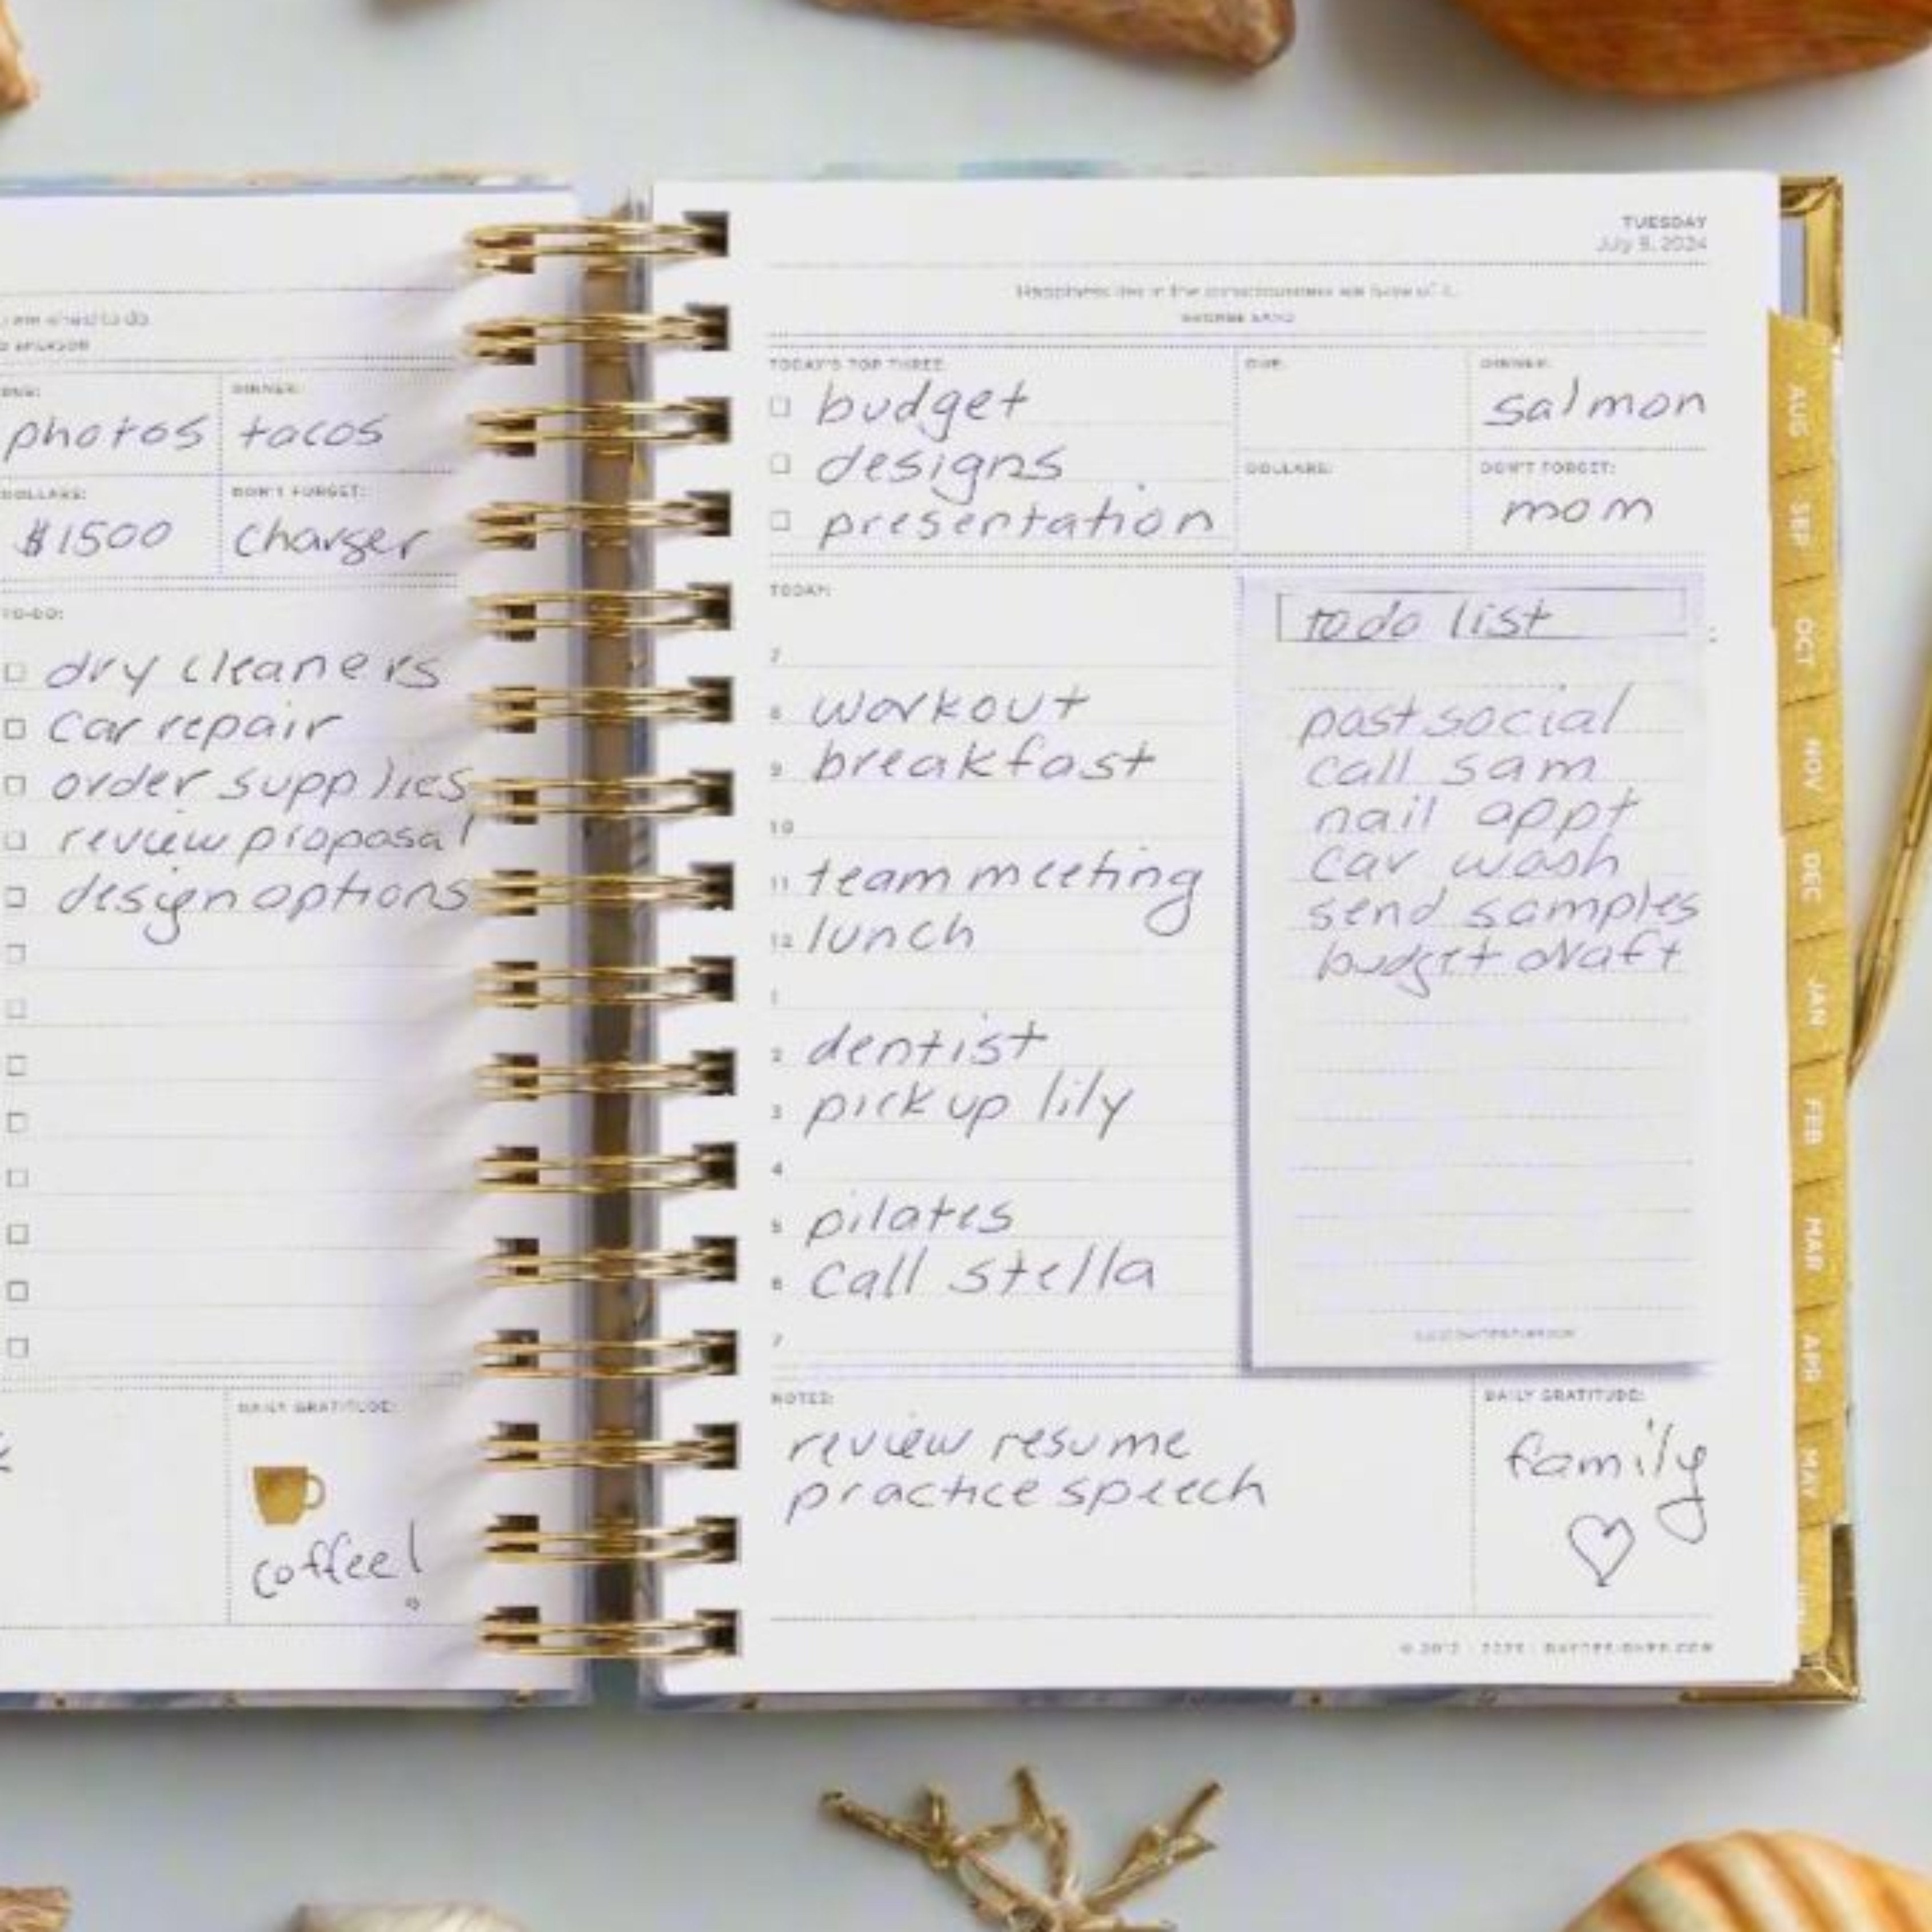 DUE:
photos
DINNER:
tacos
DOLLARS:
$1500
DON'T FORGET:
charger
TO-DO:
dry cleaners
car repair
order supplies
review proposal
design options
DAILY GRATITUDE:
coffee!
TUESDAY
July 9, 2024
Happiness lies in the consciousness we have of it.
GEORGE SAND
TODAY'S TOP THREE:
budget
designs
presentation
DUE:
DINNER:
salmon
DOLLARS:
DON'T FORGET:
mom
TODAY:
7
8 workout
9 breakfast
10
11 team meeting
12 lunch
1
2 dentist
3 pick up lily
4
5 pilates
6 call stella
7
todo list
post social
call sam
nail appt
car wash
send samples
budget draft
NOTES:
review resume
practice speech
DAILY GRATITUDE:
family
AUG
SEP
OCT
NOV
DEC
JAN
FEB
MAR
APR
MAY